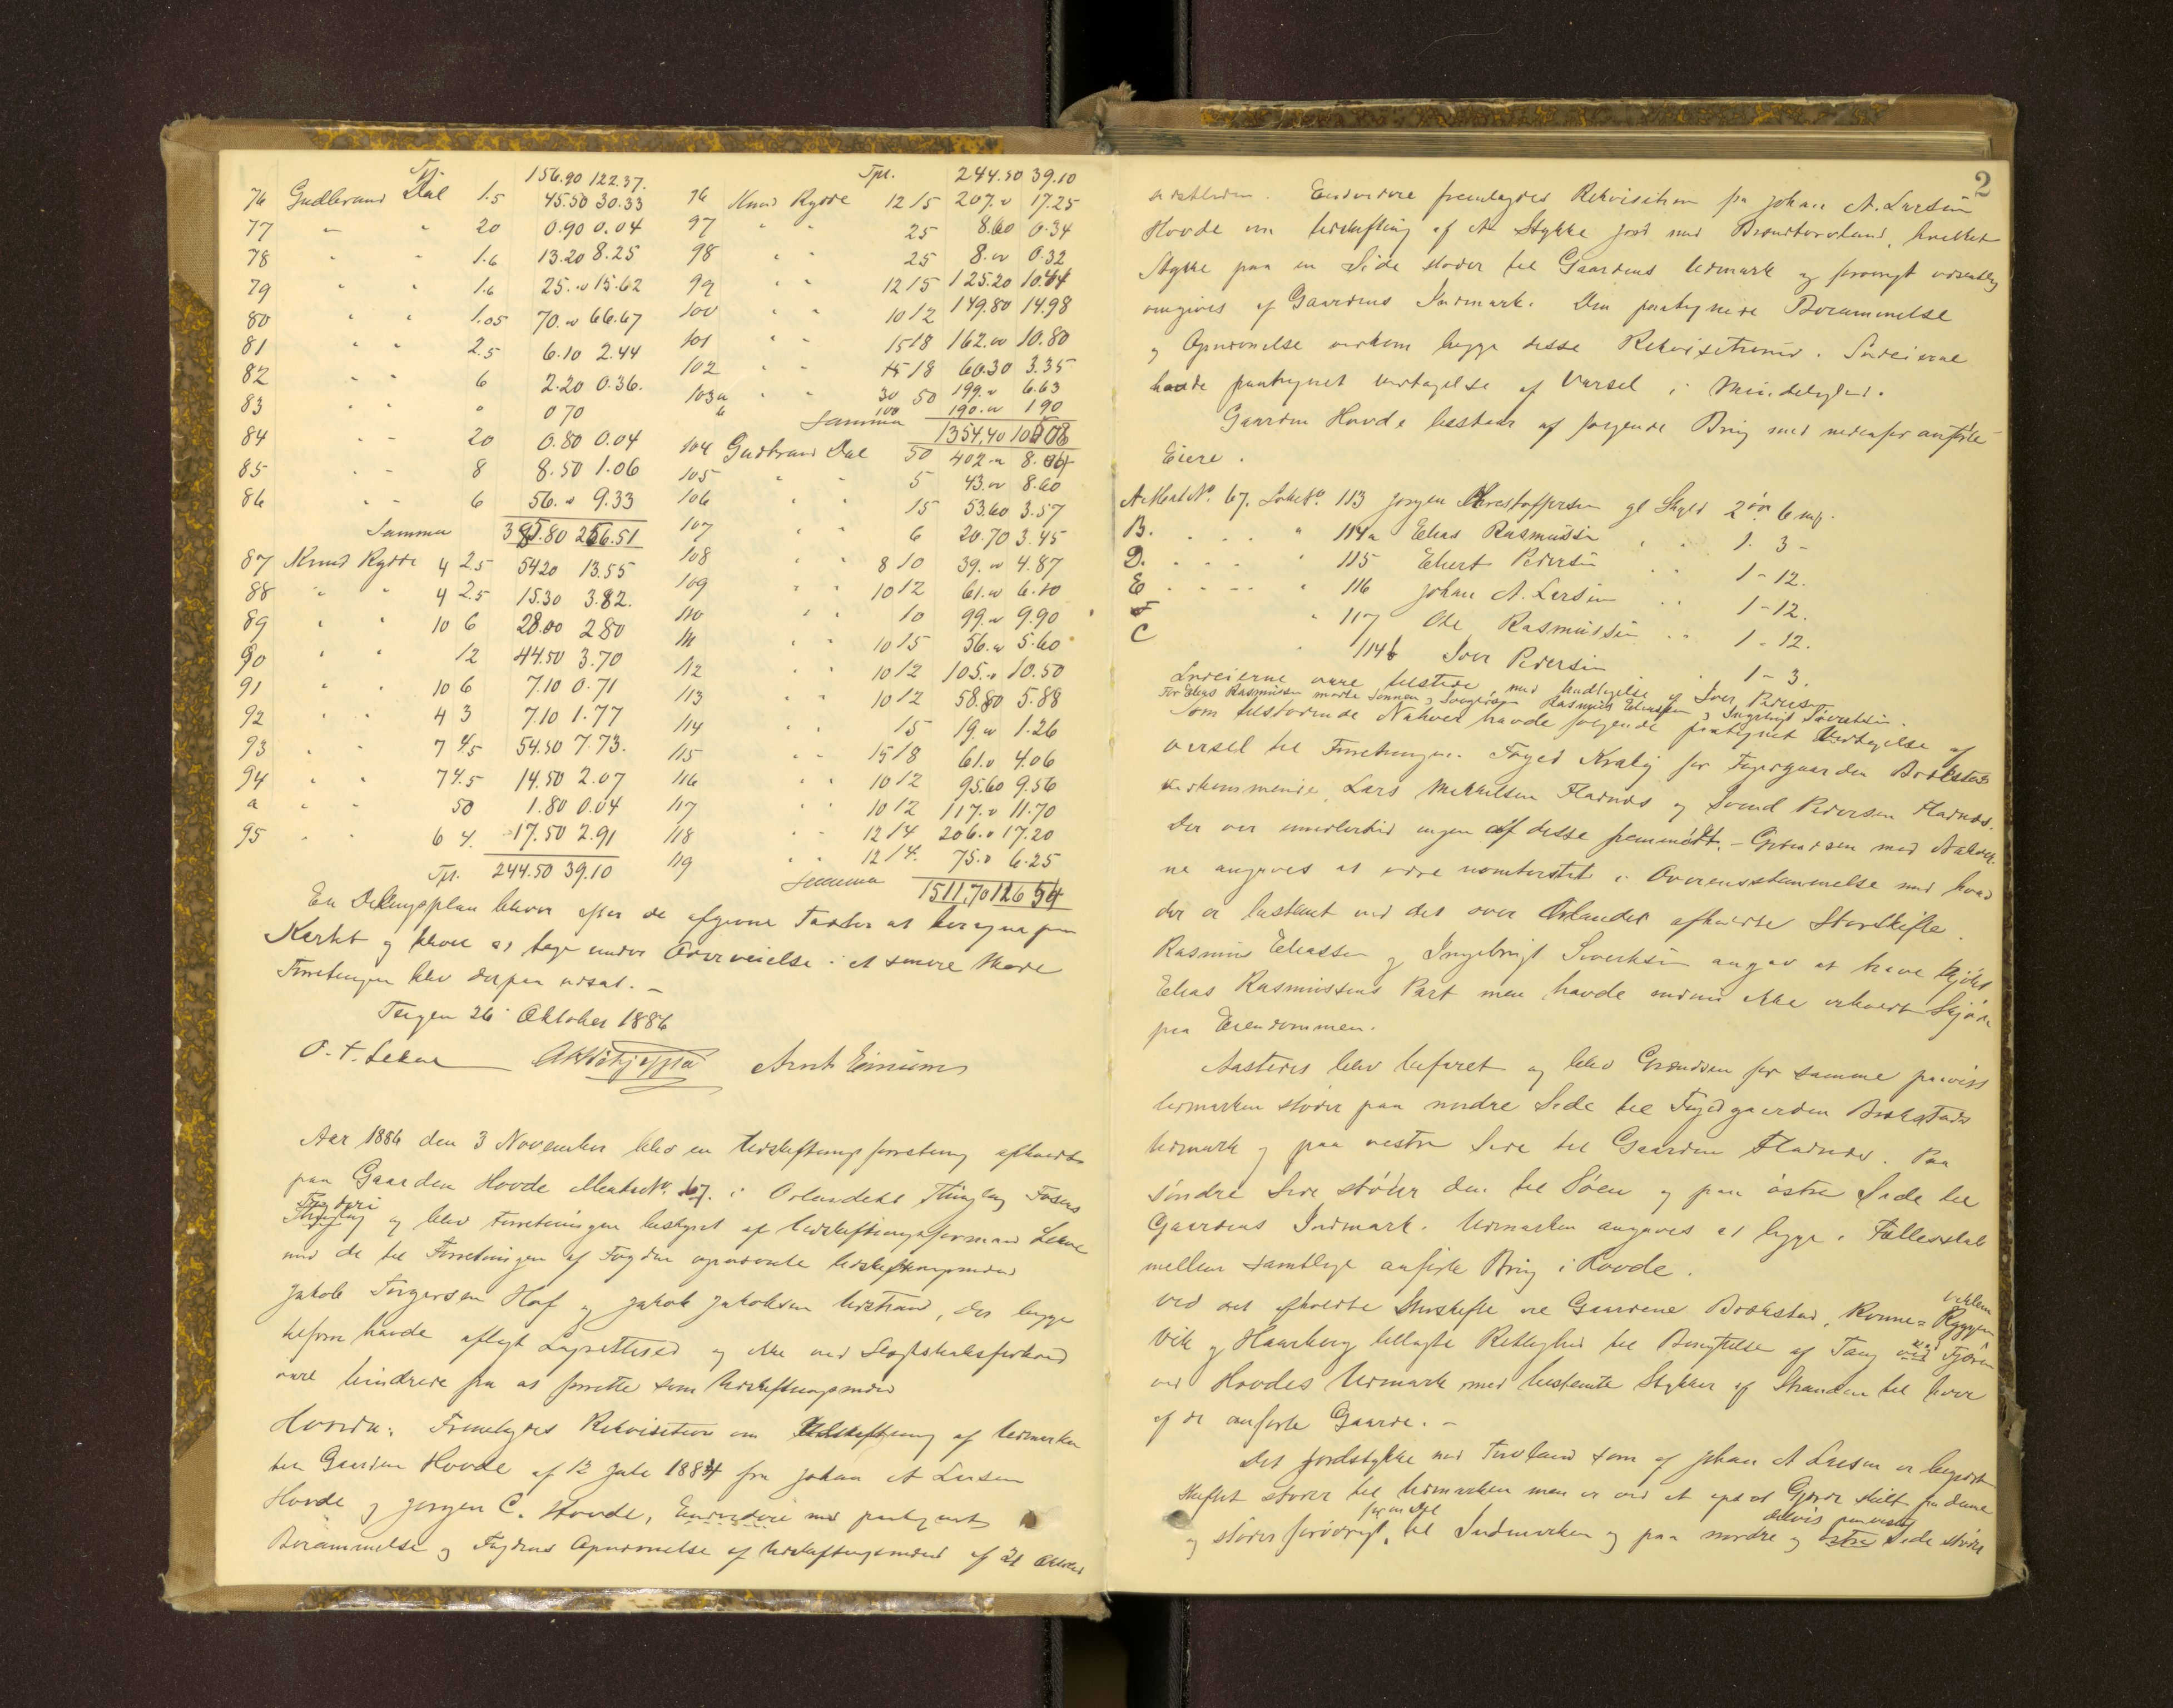 Tpt. 156.90 122.37.
76 Gudbrand Dal 1.5 45.50 30.33
77 " " 20 0.90 0.04
78 " " 1.6 13.20 8.25
79 " " 1.6 25." 15.62
80 " " 1.05 70." 66.67
81 " " 2.5 6.10 2.44
82 " " 6 2.20 0.36.
83 " " " 0 70
84 " " 20 0.80 0.04
85 " " 8 8.50 1.06
86 " " 6 56." 9.33
Summa 395.80 256.51
87 Knud Rydde 4 25 5420 13.55
88 " " 4 2.5 15.30 3.82.
89 " " 10 6 28.00 280
90 " " 12 44.50 3.70
91 " " 10 6 7.10 0.71
92 " " 4 3 7.10 1.77
93 " " 7 4/5 54.50 7.73.
94 " " 7 4.5 14.50 2.07
a " " 50 1.80 0.04
95 " " 6 4. 17.50 2.91
Tpt. 244.50 39.10
Tpt. 244.50 39.10
96 Knud Rydde 12 15 207." 17.25
97 " " 25 8.60 0.34
98 " " 25 8." 0.32
99 " " 12 15 125.20 10.44
100 " " 10 12 149.80 14.98
101 " " 15 18 162.00 10.80
102 " " 15 18 60.30 3.35
103a " " 30 50 199." 6.63
b 100 190." 190
Summa 1354,40 10508
104 Gudbrand Dal 50 402." 8.04
105 " " 5 43." 8.60
106 " " 15 53.60 3.57
107 " " 6 20.70 3.45
108 " " 8 10 39." 4.87
109 " " 10 12 61." 6.10
110 " " 10 99." 9.90
111 " " 10 15 56." 5.60
112 " " 10 12 105." 10.50
113 " " 10 12 58.80 5.88
114 " " 15 19." 1.26
115 " " 15 18 61." 4.06
116 " " 10 12 95.60 9.56
117 " " 10 12 117." 11.70
118 " " 12 14 206." 17.20
119 " " 12 14. 75." 6.25
Summa 1511,70 126 54
En Delingsplan bliver efter de afgivne Taxter at beregne paa
Kartet og bliver at tage under Overveielse i et senere Møde
Forretningen blev derpaa udsat. –
Teigen 26 Oktober 1886
O. T. Lekne Arnt Einum
Aar 1886 den 3 November blev en Udskiftningsforretning afholdt
paa Gaarden Hovde Matr No. 67. i Ørlandets Thinglag Fosens
Fogderi
Thinglag og blev Forretningen bestyret af Udskiftningsformand Lekne
med de til Forretningen af Fogden opnævnte Udskiftningsmænd
Jakob Torgersen Hof og Jakob Jakobsen Udstrand, der begge
tilforn havde aflagt Lagrettesed og ikke ved Slegtskabsforhold
vare hindrede fra at forrette som Udskiftningsmænd
Hvorda: Fremlagdes Rekvisition om Udskiftning af Udmarken
til Gaarden Hovde af 12 Juli 1884 fra Johan A Larsen
Hovde og Jørgen C. Hovde, Endvidere med paategnet
Berammelse og Fogdens Opnævnelse af Udskiftningsmænd af 21 Oktober
2
sidstleden. Endvidere fremlagdes Rekvisition fra Johan A. Larsen
Hovde om Udskifting af Et Stykke Jord med Brændtorvland, hvilket
Stykke paa en Side støder til Gaardens Udmark og forøvrigt væsentlig
omgives af Gaardens Indmark. Den paategnede Berammelse
og Opnævnelse vedkom begge disse Rekvisitioner. Lodeierne
havde paategnet Vedtagelse af Varsel i Mindelighed.
Gaarden Hovde bestaar af følgende Brug med nedenfor anførte
Eiere.
A. Matr No. 67. Løbe No. 113 Jørgen Chrestoffersen gl Skyld 2 ør 6 mg.
B. . . . . " 114a Elias Rasmussen . . 1. 3 -
D. . . . . " 115 Ehert Pedersen . . 1 - 12.
E . . . . " 116 Johan A. Larsen . . 1 - 12.
F " 117 Ole Rasmussen . . 1 - 12.
C 114b Iver Pedersen 1 - 3.
Lodeierne vare tilstede med Undtagelse af Iver Pedersen
For Elias Rasmussen mødte Sønnen og Svogeren Rasmus Eliassen og Ingebrigt Sivertsen.
Som tilstødende Naboer havde følgende paategnet Vedtagelse af
Varsel til Forretningen. Foged Kralig for Fogedgaarden Brækstad
vedkommende, Lars Mikkelsen Fladnes og Svend Pedersen Fladnes.
Der var imidlertid ingen af disse fremmødt. – Grændsen med Naboer-
ne angaves at være uomtvistet i Overensstemmelse med hvad
der er bestemt ved det over Ørlandet afholdte Storskifte.
Rasmus Eliassen og Ingebrigt Sivertsen angav at have kjøbt
Elias Rasmussens Part men havde endnu ikke erholdt Skjøde
paa Eiendommen.
Aastedet blev befaret og blev Grændsen for samme paavist
Udmarken støder paa nordre Side til Fogedgaarden Brækstads
Udmark og paa vestre Side til Gaarden Fladnes. Paa
søndre Side støder den til Søen og paa østre Side til
Gaardens Indmark. Udmarken angaves at ligge i Fællesskab
mellem samtlige anførte Brug i Hovde.
Viklem
Ved det afholdte Storskifte ere Gaardene Brækstad, Ronne= Ryggen
Vik og Haarberg tillagte Rettighed til Benyttelse af Tang ved Fjæren
ved Hovdes Udmark med bestemte Stykker af Stranden til hver
af de anførte Gaarde. –
Det Jordstykke med Torvland som af Johan A Larsen er begjært
skiftet støder til Udmarken men er ved et opsat Gjærde skilt fra denne
for en Del delvis paa vestre
og støder forøvrigt til Indmarken og paa nordre og østre Side støder